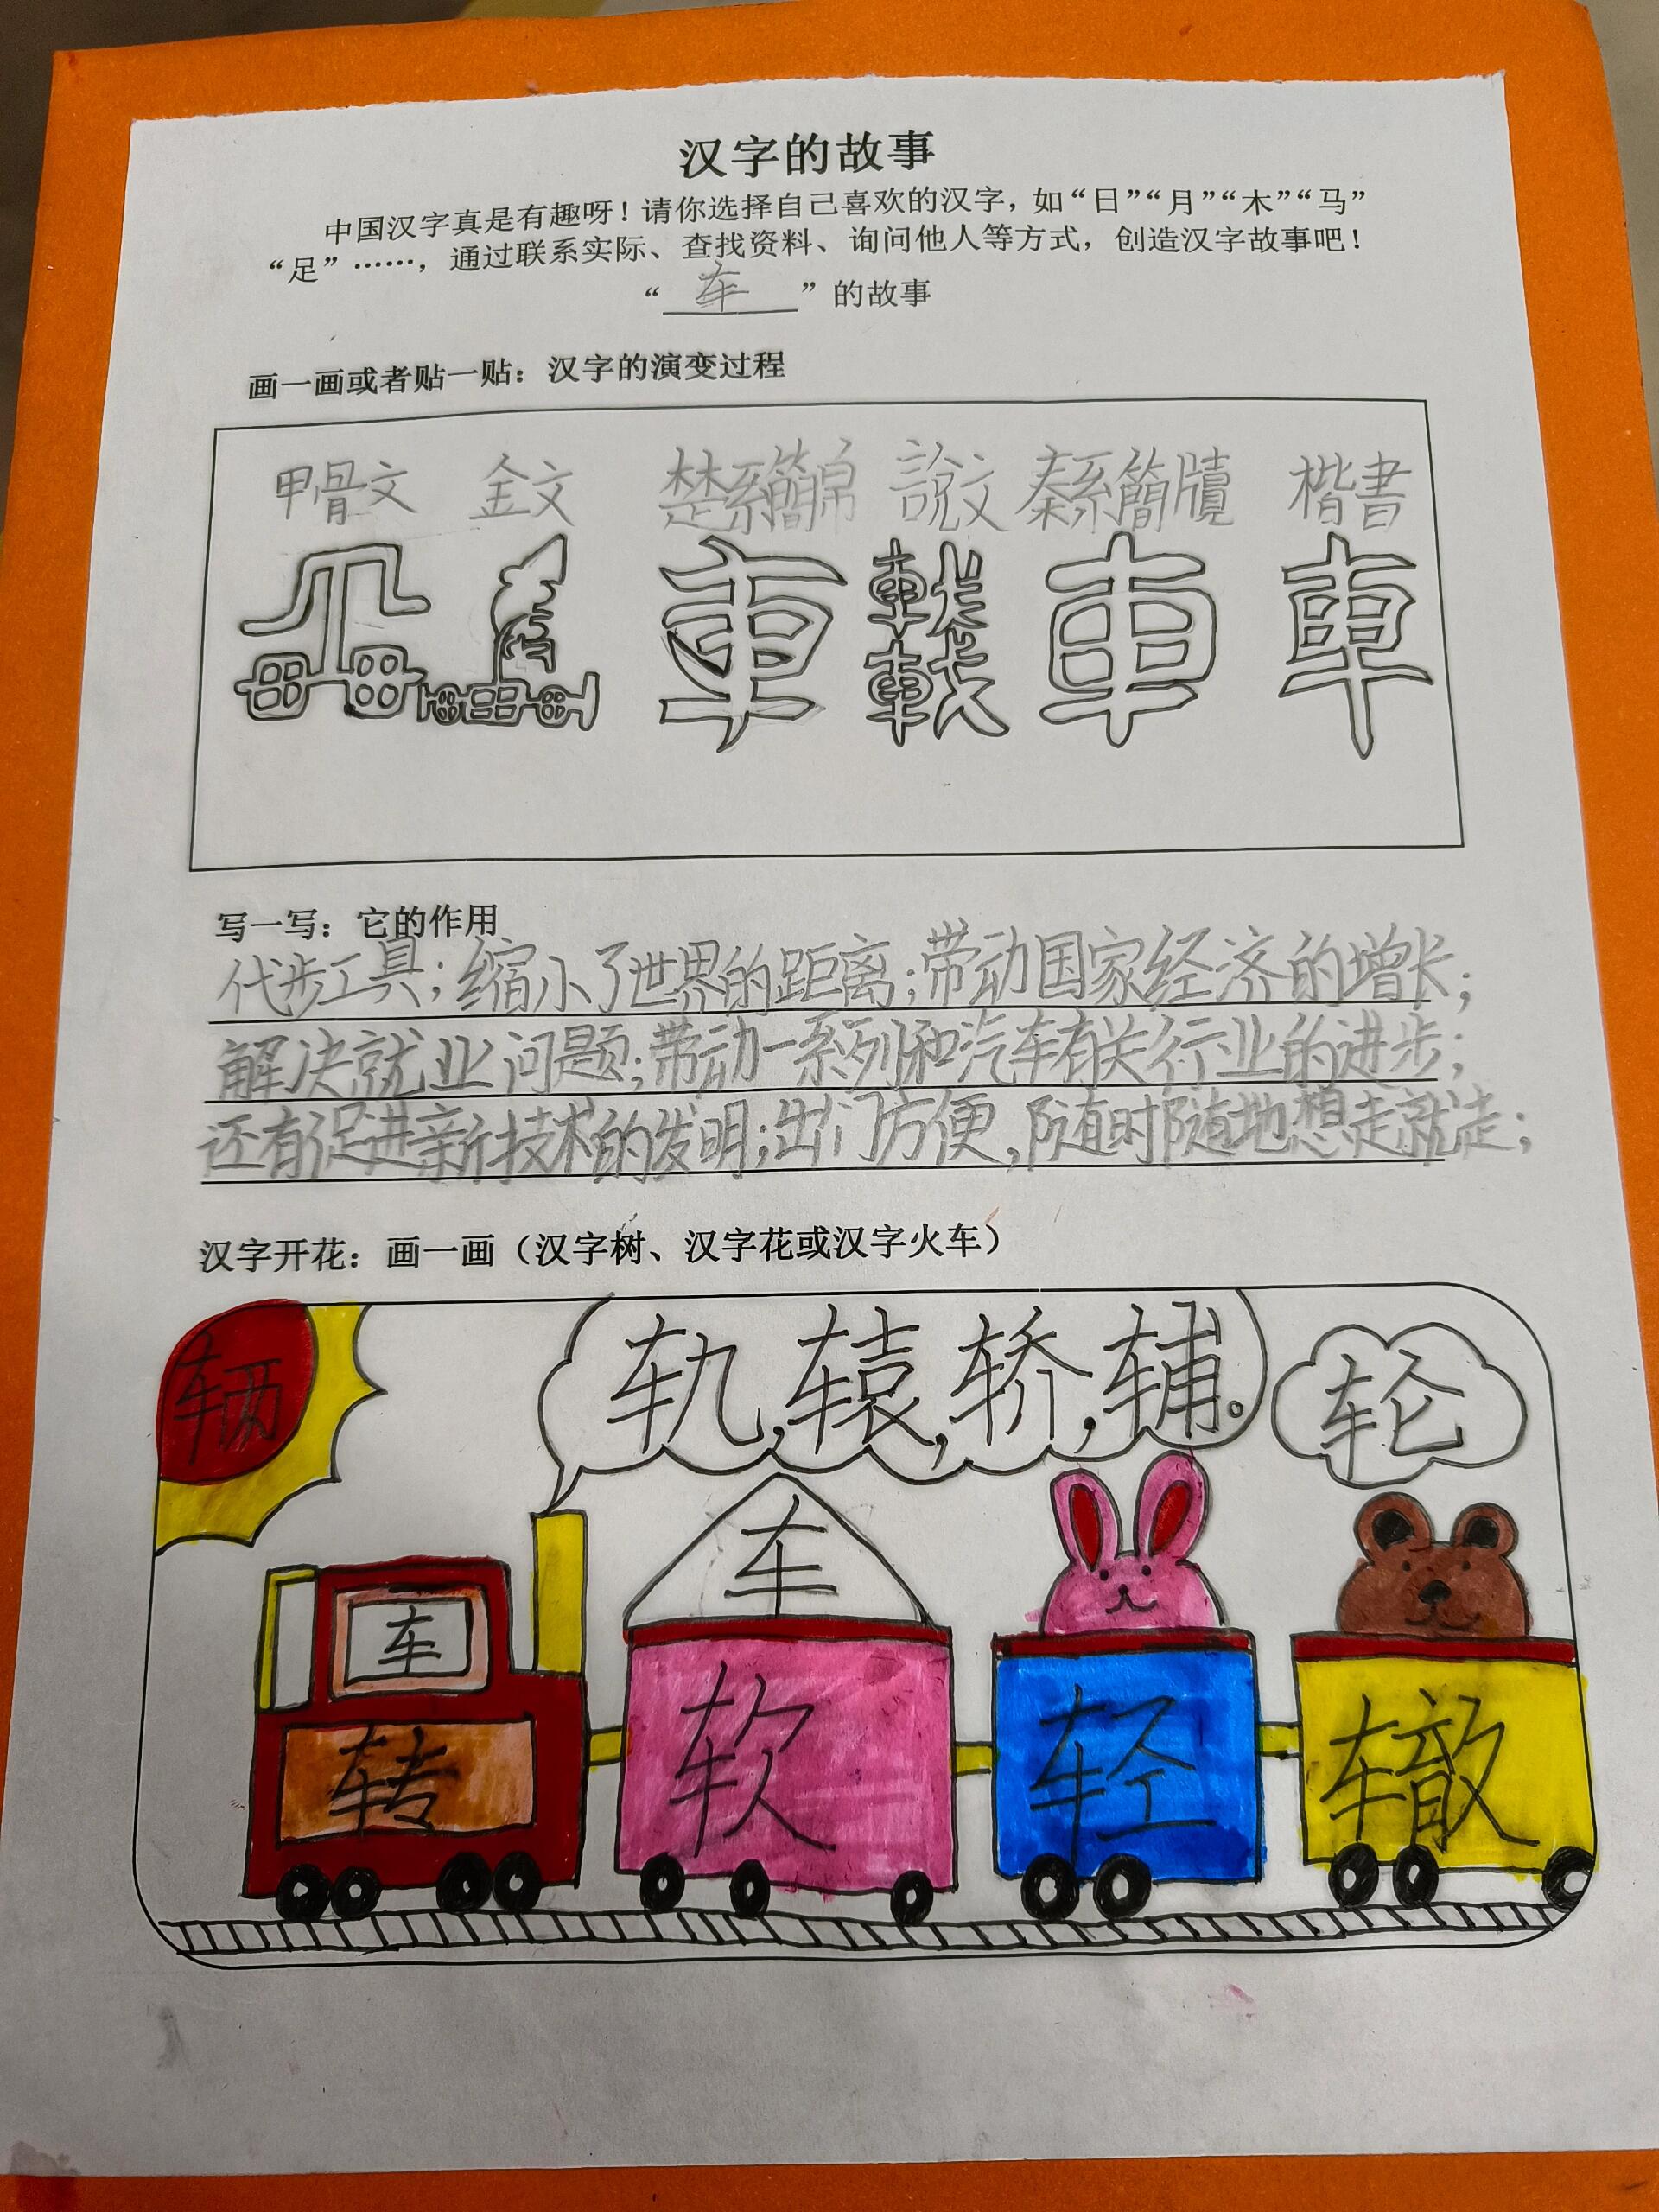 汉字的故事
中国汉字真是有趣呀！请你选择自己喜欢的汉字，如“日”“月”“木”“马”
“足”……，通过联系实际、查找资料、询问他人等方式，创造汉字故事吧！
“车”的故事
画一画或者贴一贴：汉字的演变过程
甲骨文 金文 楚系簡帛 說文 秦系簡牘 楷書
車 車 車
写一写：它的作用
代步工具；缩小了世界的距离；带动国家经济的增长；
解决就业问题；带动一系列和汽车有关行业的进步；
还有促进新技术的发明；出门方便，随时随地想走就走；
汉字开花：画一画（汉字树、汉字花或汉字火车）
辆 轨，辕，轿，辅。 轮
车 车
转 软 轻 辙